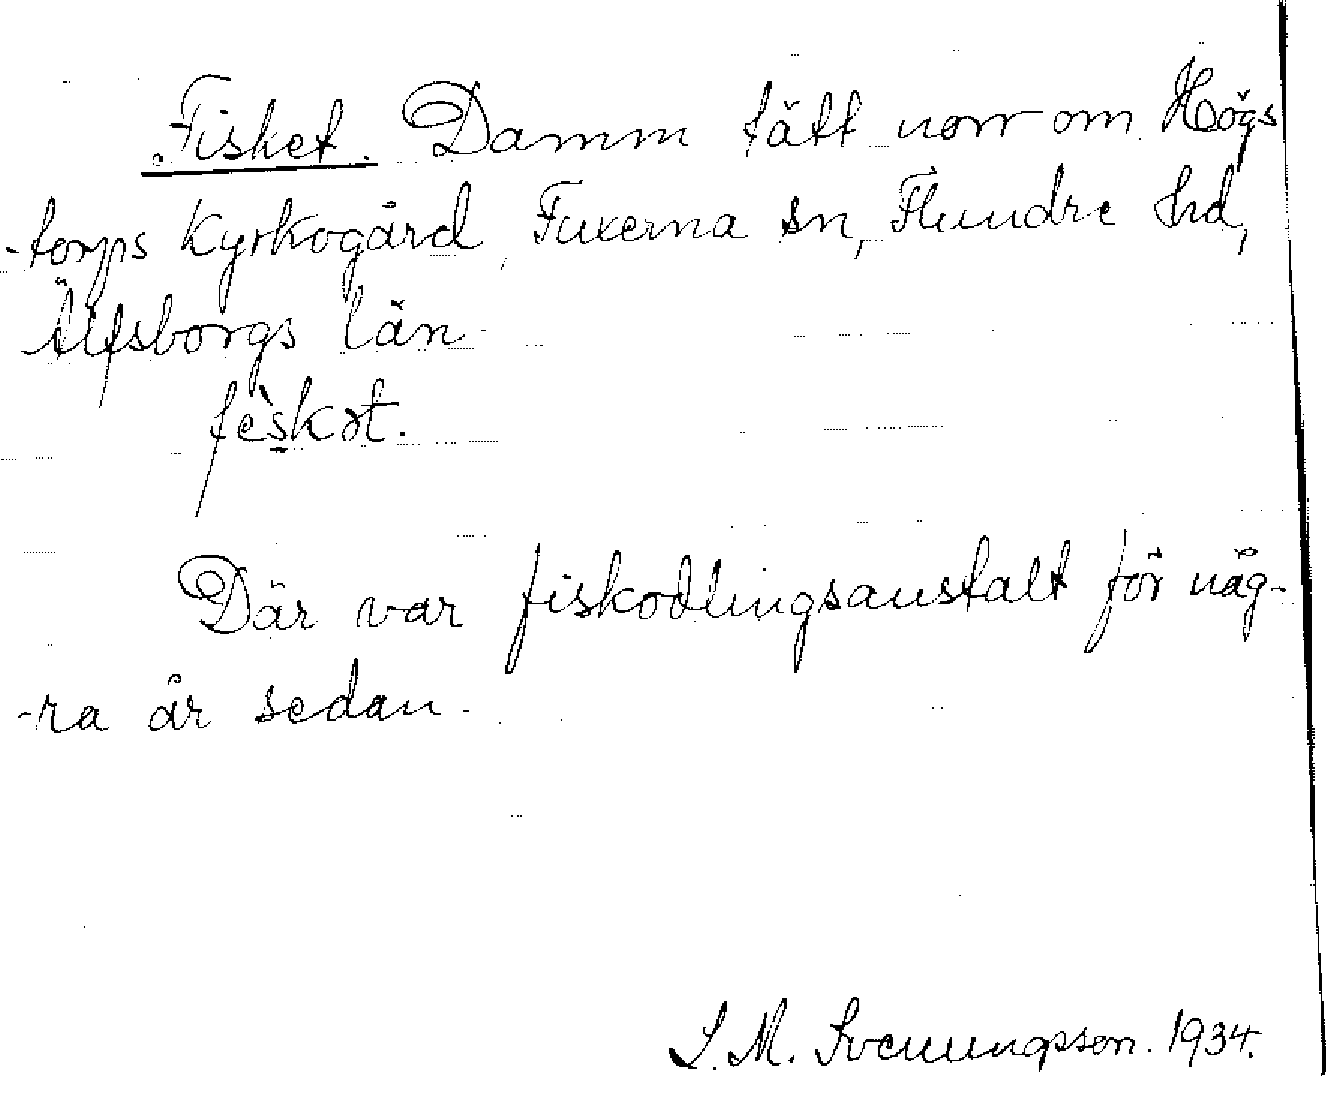 Fisket. Damm tätt norr om Högs
-torps Kyrkogård, Fuxerna sn, Flundre hd,
Älfsborgs län
fèskət.
Där var fiskodlingsanstalt för någ-
-ra år sedan.
S. M. Svenungsson. 1934.